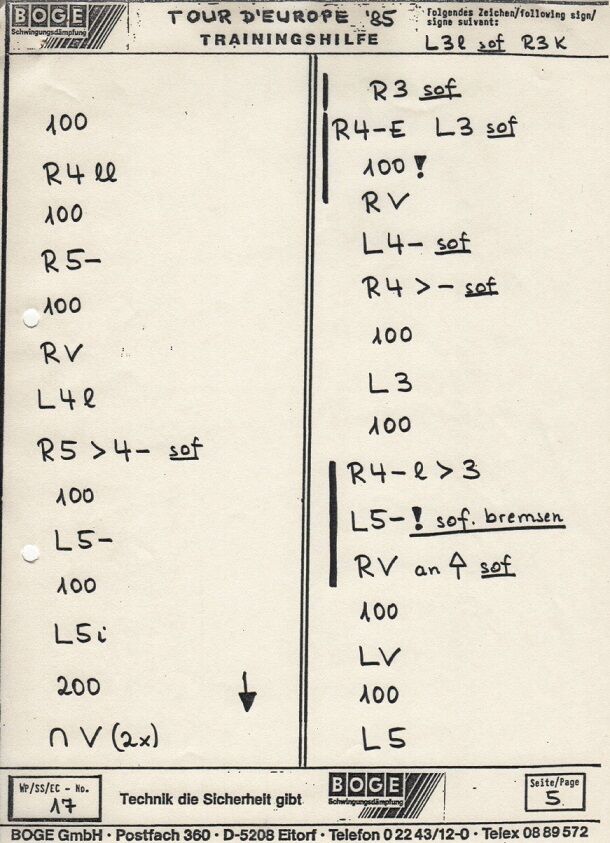 BOGE
Schwingungsdämpfung
TOUR D'EUROPE '85
TRAININGSHILFE
Folgendes Zeichen/following sign/
signe suivant:
L3l sof R3K
100
R4 ll
100
R5-
100
RV
L4l
R5 >4- sof
100
L5-
100
L5i
200
↓
∩ V (2x)
R3 sof
R4-E L3 sof
100!
RV
L4- sof
R4 >- sof
100
L3
100
R4-l>3
L5-! sof. bremsen
RV an ↑ sof
100
LV
100
L5
WP/SS/EC - No.
17
Technik die Sicherheit gibt
BOGE
Schwingungsdämpfung
Seite/Page
5
BOGE GmbH · Postfach 360 · D-5208 Eitorf · Telefon 0 22 43/12-0 · Telex 08 89 572